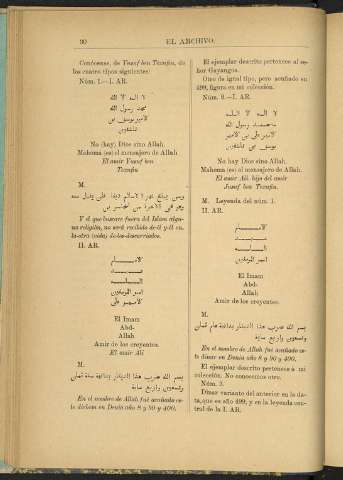 90 EL ARCHIVO.
Conócense, de Yusuf ben Taxufin, de
los cuatro tipos siguientes:
Núm. 1.—I. AR.
لا اله الا الله
محمد رسول الله
الامير يوسف بن
تاشفين
No (hay) Dios sino Allah
Mahoma (es) el mensajero de Allah
El amir Yusuf ben
Taxufin
M.
Y el que buscare fuera del Islam algu-
na religión, no será recibida de él y él en
la otra (vida) de los descarriados.
II. AR.
الامـــام
عبـــد
الـــله
امير المومنين
الامير على
El Imam
Abd-
Allah
Amir de los creyentes.
El amir Alí
M.
بسم الله ضرب هذا الدينار بدانية سنة ثمان
وتسعين واربع ماية
En el nombre de Allah fué acuñado es-
te dinar en Denia año 8 y 90 y 400.
El ejemplar descrito pertenece al se-
ñor Gayangos.
Otro de igual tipo, pero acuñado en
499, figura en mi colección.
Núm. 2.—I. AR.
لا اله الا الله
محمد رسول الله
الامير على بن الامير
يوسف بن تاشفين
No hay Dios sino Allah.
Mahoma (es) el mensajero de Allah
El amir Alí hijo del amir
Yusuf ben Taxufin.
M. Leyenda del núm. 1.
II. AR.
الامـــام
عبـــد
الـــله
امير المومنين
El Imam
Abd-
Allah
Amir de los creyentes.
M.
بسم الله ضرب هذا الدينار بدانية عام ثمان
وتسعين واربع ماية
En el nombre de Allah fué acuñado es-
te dinar en Denia año 8 y 90 y 400.
El ejemplar descrito pertenece a mi
colección. No conocemos otro.
Núm. 3.
Dinar variante del anterior en la da-
ta, que es año 499, y en la leyenda cen-
tral de la I. AR.